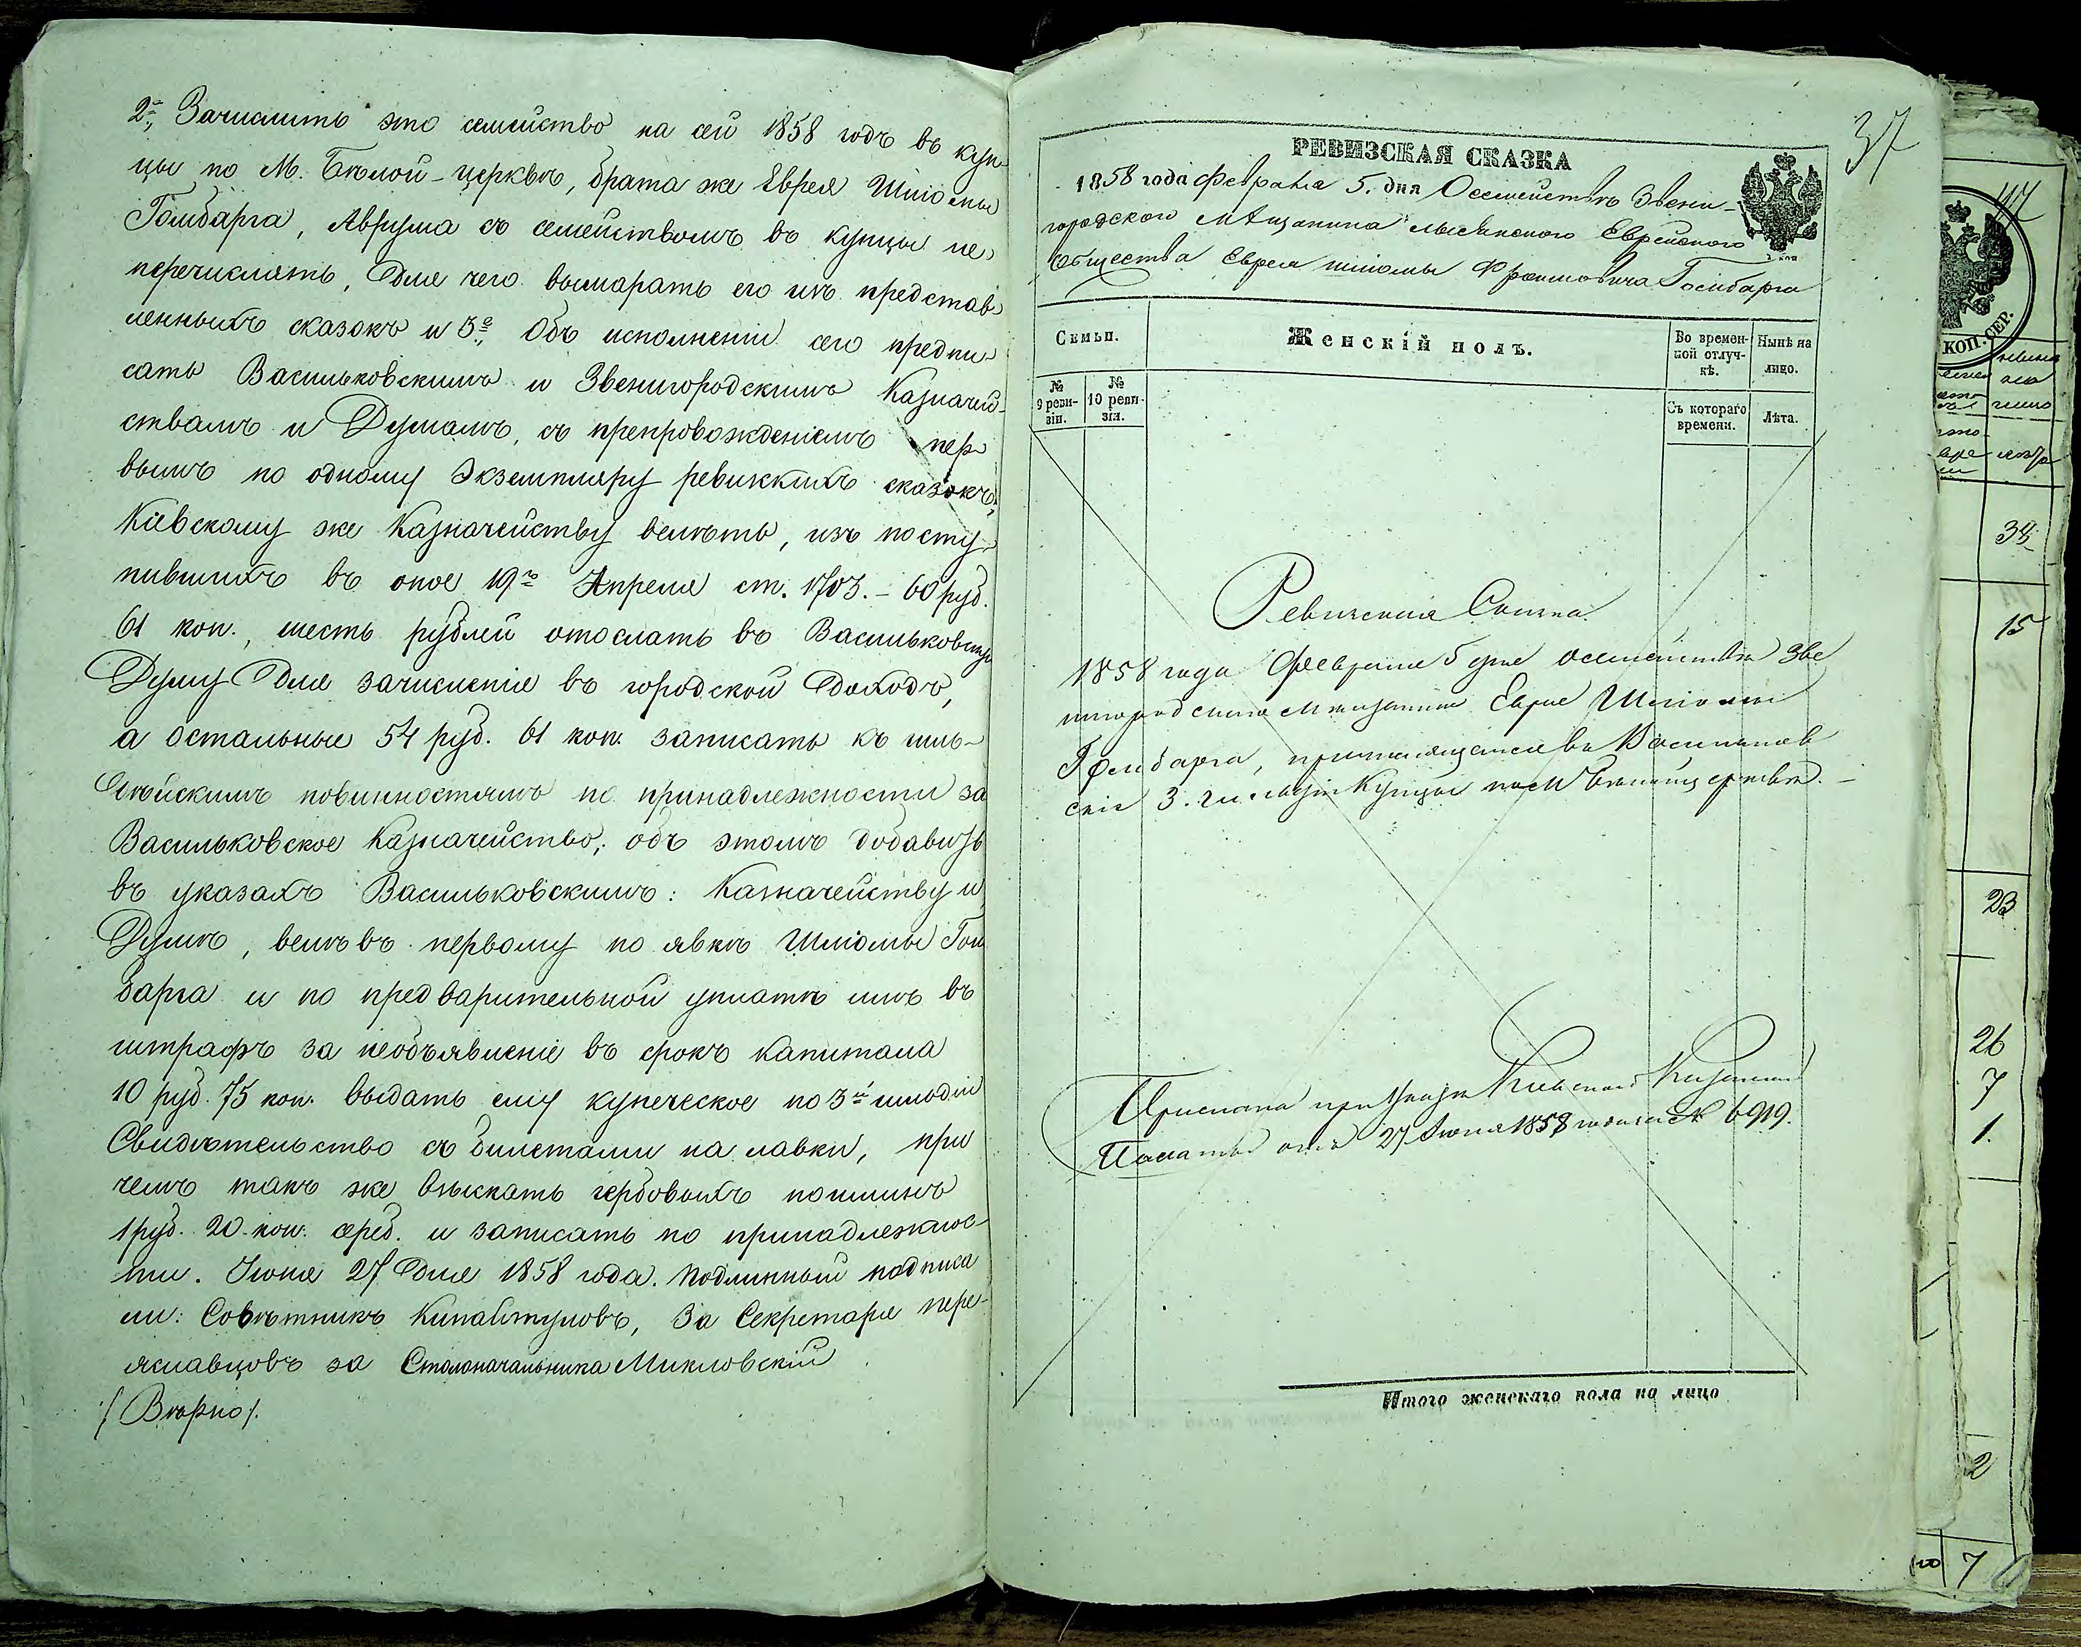 2е, Зачислить это семейство на сей 1858 годъ въ куп
цы по М. Бѣлой-церквѣ, брата же Еврея Шліомы
Гольбарга, Аврума съ семействомъ въ купцы не
перечислять, для чего вымарать его изъ представ
ленныхъ сказокъ и 3е, Объ исполненіи сего предпи
сать Васильковскимъ и Звенигородскимъ Казначей-
ствамъ и Думамъ, съ препровожденіемъ пер
вымъ по одному экземпляру ревизскихъ сказокъ,
Кіевскому же Казначейству велѣть, изъ посту
пившихъ въ оное 19го Апреля ст. 1703. – 60 руб.
61 коп., шесть рублей отослать въ Васильковскую
Думу для зачисленія въ городской доходъ,
а остальные 54 руб. 61 коп. записать къ
повинностямъ по принадлежности за
Васильковское Казначейство; объ этомъ добавить
въ указахъ Васильковскимъ: Казначейству и
Думѣ, велѣвъ первому по явкѣ Шліомы Голь
барга и по предварительной уплатѣ имъ въ
штрафъ за необъявленіе въ срокъ капитала
10 руб. 75 коп. выдать ему купеческое по 3й гильдіи
Свидѣтельство съ билетами на лавки, при
чемъ такъ же взыскать гербовыхъ пошлинъ
1 руб. 20 коп. сереб. и записать по принадлежнос-
ти. Іюня 27 дня 1858 года. Подлинный подписа
ли: Совѣтникъ, За Секретаря Пере-
яславцовъ за Столоначальника Микловскій
/Вѣрно/.
37
РЕВИЗСКАЯ СКАЗКА
1858 года Февраля 5. дня О семействѣ Звени-
городского мѣщанина лысянского Еврейского
общества Еврея шліомы Фроимовича Гольбарга
Семьи.
Женскій полъ.
Во времен-
ной отлуч-
кѣ.
Нынѣ на
лицо.
№
9 реви-
зіи.
№
10 реви-
зіи.
Съ котораго
времени.
Лѣта.
Ревизская Сказка.
1858 года Февраля 5 дня о семействѣ Зве
нигородского мѣщанина Еврея Шліомы
Гольбарга, причисляющагося въ Васильков
скіе 3. гильдіи Купцы по М Бѣлой церквѣ. –
Прислана при Указѣ Кіевской Казенной
Палаты отъ 27 Іюня 1858 года за № 6919.
Итого женскаго пола на лицо
КОП. СЕР.
34
15
23
26
7
1.
2
7